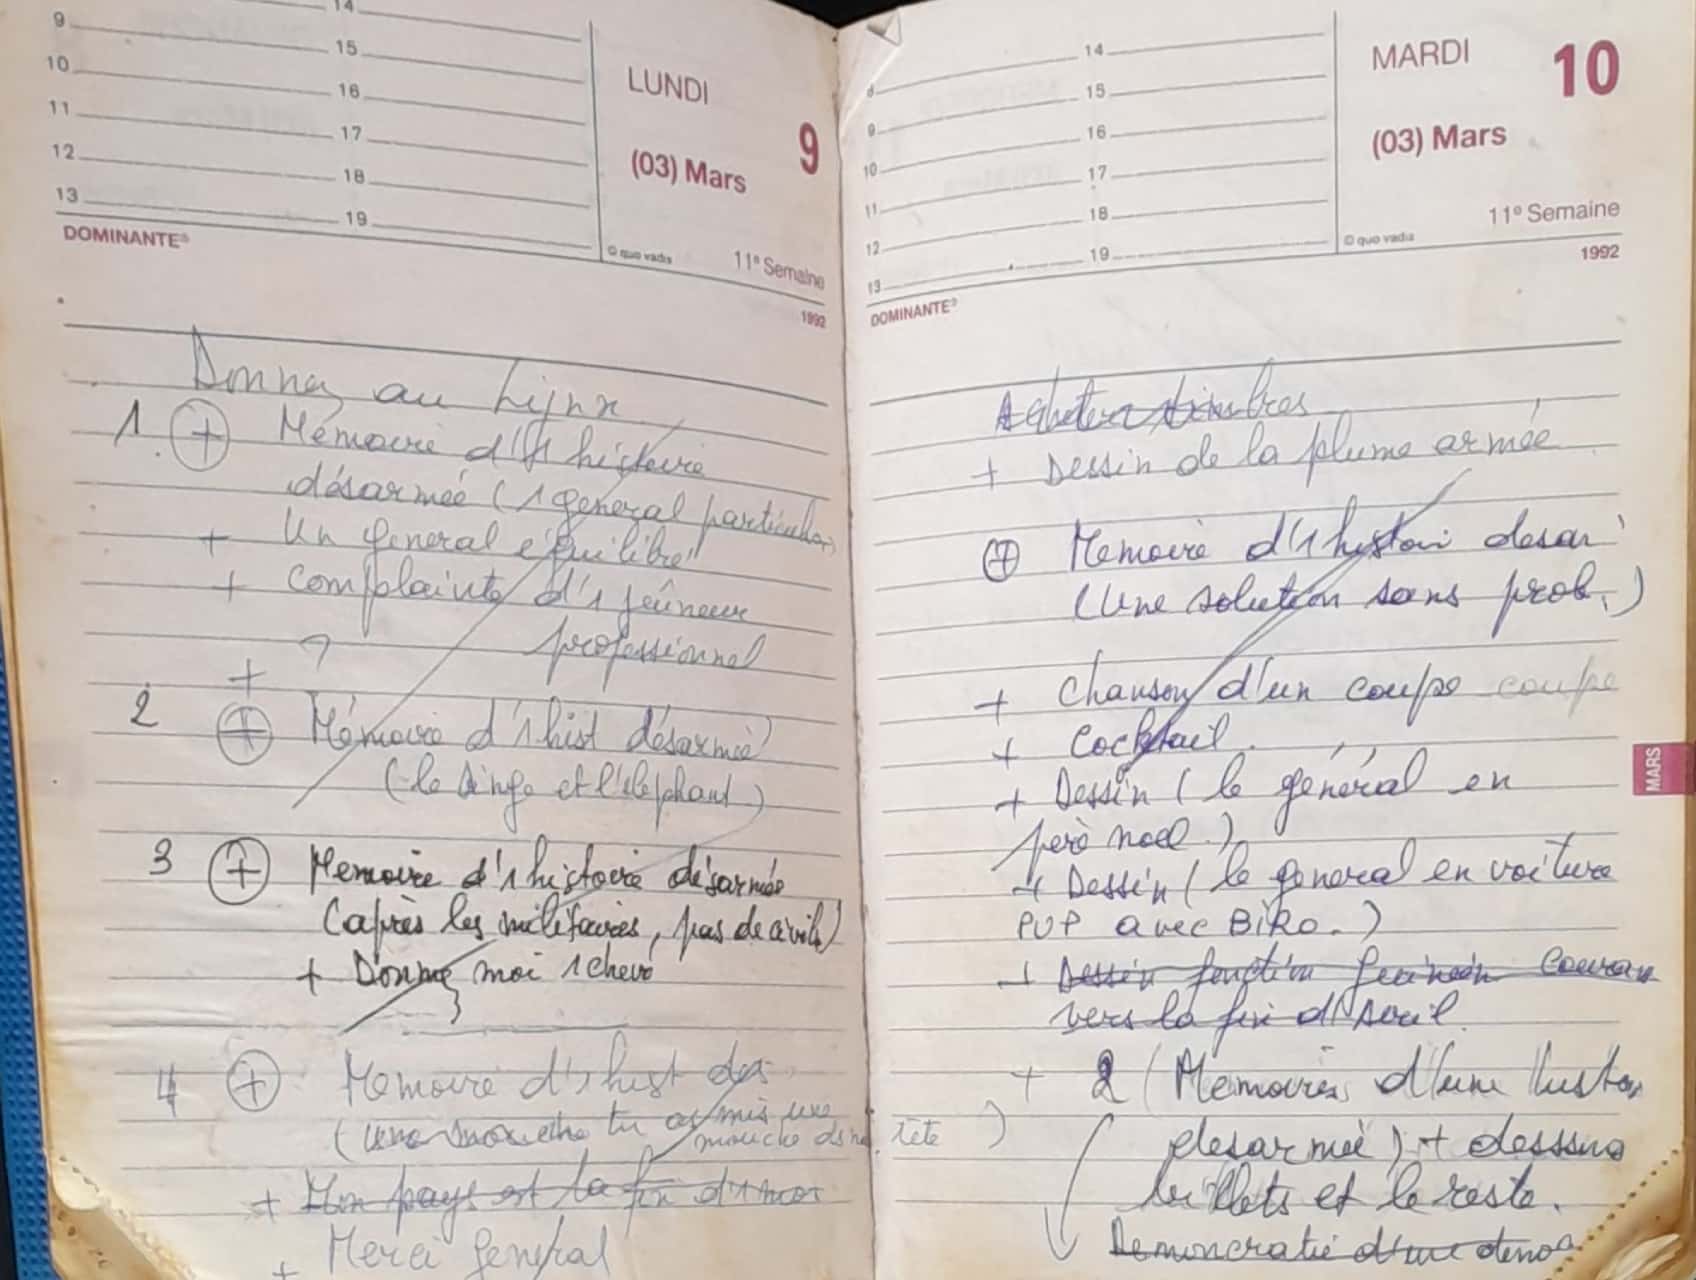 14
9
15
10
16
11
17
12
18
13
19
LUNDI
9
(03) Mars
DOMINANTE
© quo vadis
11e Semaine
1992
Donnez au Lynx
1. + Mémoire d'1 histoire
désarmée (1 general particulier)
+ Un general équilibré
+ Complainte d'1 jeûneur
professionnel
+
2 + Mémoire d'1 hist désarmée
(le singe et l'elephant)
3 + Memoire d'1 histoire désarmée
(après les militaires, pas de civils)
+ Donne moi 1 cheve
4 + Memoire d'1 hist des
(tu as mis une
mouche ds ma tête)
+ Mon pays est la fin d'1 mot
+ Merci general
14
8
15
9
16
10
17
11
18
12
19
13
MARDI
10
(03) Mars
11e Semaine
© quo vadis
1992
DOMINANTE
Acheter timbres
+ Dessin de la plume armée
+ Memoire d'1 histoir desar
(Une solution sans prob.)
+ Chanson d'un coupe coupe
+ Cocktail.
+ Dessin (le général en
père noel.)
+ Dessin (le general en voiture
PUP avec BIRO.)
+ Dessin fonction
vers la fin d'Avril.
+ 2 (Memoires d'une histo
desarmée) + dessins
billets et le reste.
Demoncratie d'une
MARS